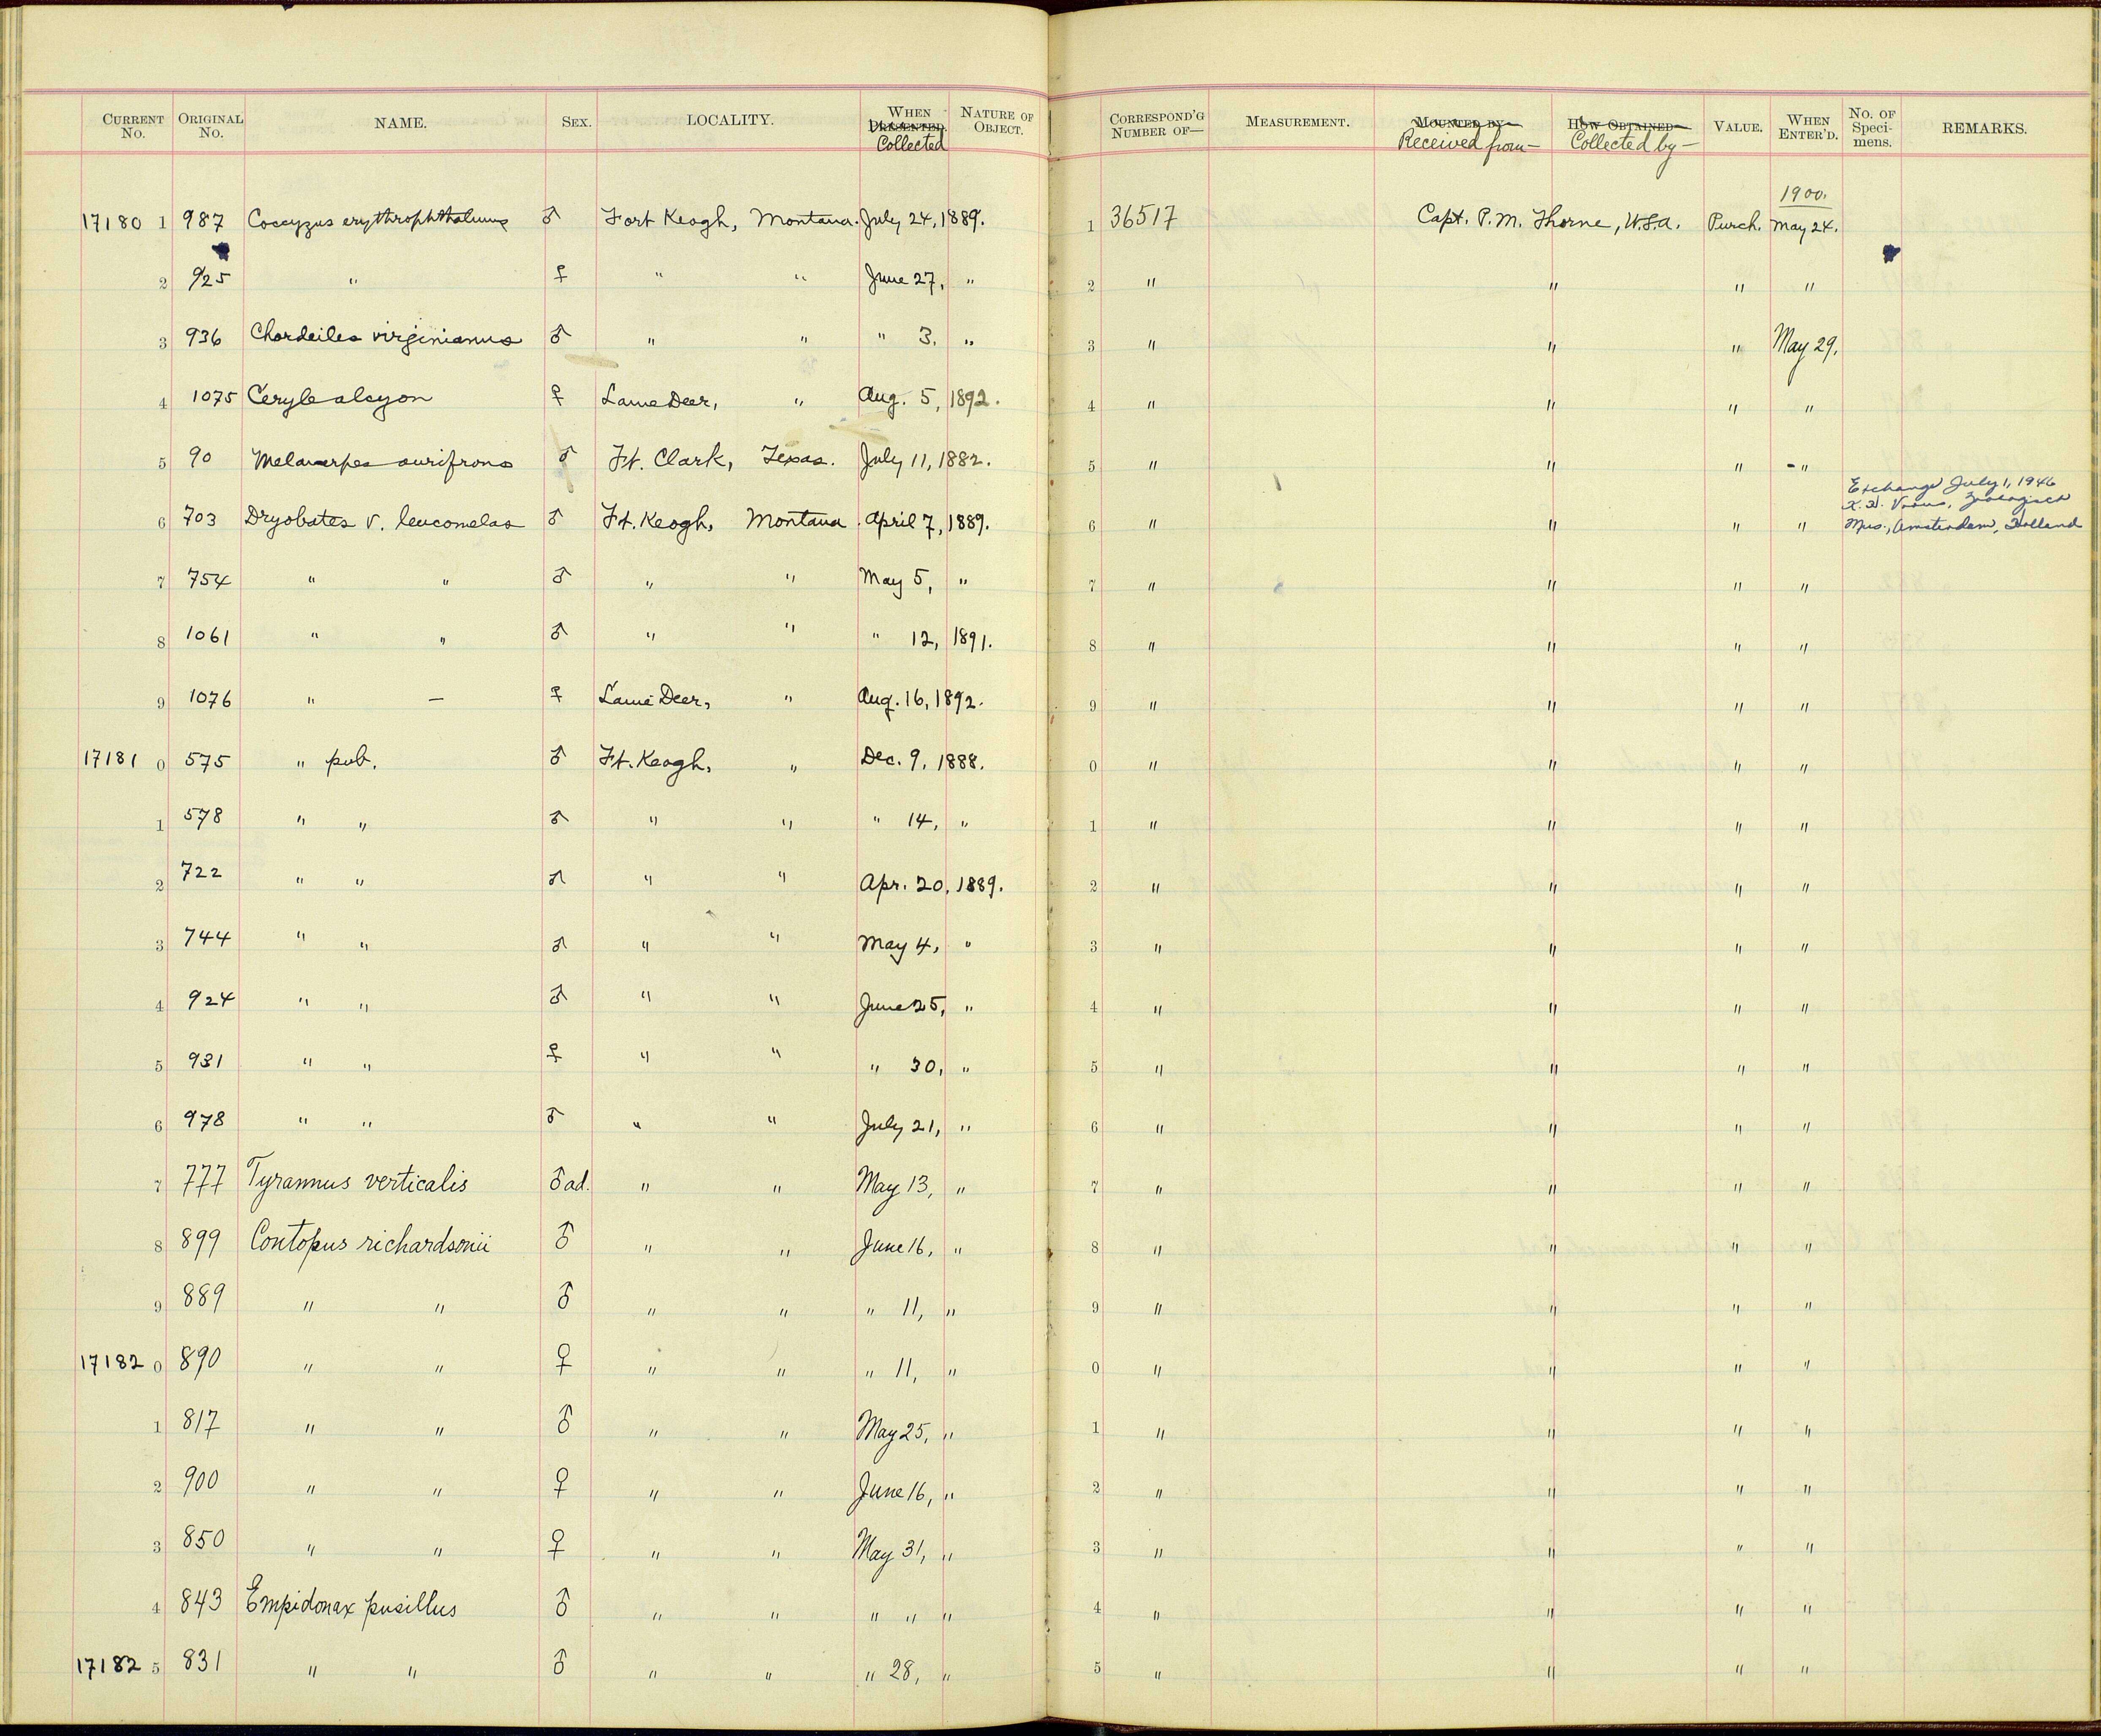 CURRENT No. ORIGINAL No. NAME. SEX. LOCALITY. WHEN PRESENTED. Collected NATURE OF OBJECT. CORRESPOND'G NUMBER OF— MEASUREMENT. MOUNTED BY— Received from— HOW OBTAINED— Collected by— VALUE. WHEN ENTER'D. No. OF Speci-mens. REMARKS.
1900.
17180 1 987 Coccyzus erythrophthalmus ♂ Fort Keogh, Montana. July 24, 1889. 1 36517 Capt. P. M. Thorne, U.S.A. Purch. May 24.
2 925 " ♀ " " June 27, " 2 " " " "
3 936 Chordeiles virginianus ♂ " " " 3. " 3 " " " May 29.
4 1075 Ceryle alcyon ♀ Lame Deer, " Aug. 5, 1892. 4 " " " "
5 90 Melanerpes aurifrons ♂ Ft. Clark, Texas. July 11, 1882. 5 " " " - "
Exchange July 1, 1946
K. H. Voous, Zoologisch
6 703 Dryobates v. leucomelas ♂ Ft. Keogh, Montana. April 7, 1889. 6 " " " " Mus., Amsterdam, Holland
7 754 " " ♂ " " May 5, " 7 " " " "
8 1061 " " ♂ " " " 12, 1891. 8 " " " "
9 1076 " — ♀ Lame Deer, " Aug. 16, 1892. 9 " " " "
17181 0 575 " pub. ♂ Ft. Keogh, " Dec. 9, 1888. 0 " " " "
1 578 " " ♂ " " " 14, " 1 " " " "
2 722 " " ♂ " " Apr. 20, 1889. 2 " " " "
3 744 " " ♂ " " May 4, " 3 " " " "
4 924 " " ♂ " " June 25, " 4 " " " "
5 931 " " ♀ " " " 30, " 5 " " " "
6 978 " " ♂ " " July 21, " 6 " " " "
7 777 Tyrannus verticalis ♂ ad. " " May 13, " 7 " " " "
8 899 Contopus richardsonii ♂ " " June 16, " 8 " " " "
9 889 " " ♂ " " " 11, " 9 " " " "
17182 0 890 " " ♀ " " " 11, " 0 " " " "
1 817 " " ♂ " " May 25, " 1 " " " "
2 900 " " ♀ " " June 16, " 2 " " " "
3 850 " " ♀ " " May 31, " 3 " " " "
4 843 Empidonax pusillus ♂ " " " " " 4 " " " "
17182 5 831 " " ♂ " " " 28, " 5 " " " "